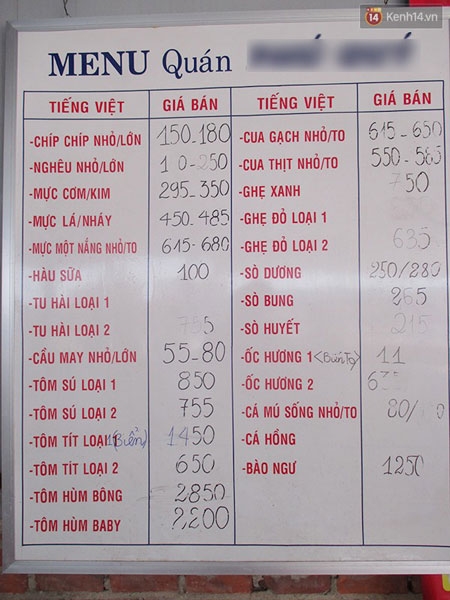 14 Kenh14.vn
MENU Quán
TIẾNG VIỆT GIÁ BÁN
-CHÍP CHÍP NHỎ/LỚN 150-180
-NGHÊU NHỎ/LỚN
-MỰC CƠM/KIM 295-350
-MỰC LÁ/NHÁY 450-485
-MỰC MỘT NẮNG NHỎ/TO 615-680
-HÀU SỮA 100
-TU HÀI LOẠI 1
-TU HÀI LOẠI 2 755
-CẦU MAY NHỎ/LỚN 55-80
-TÔM SÚ LOẠI 1 850
-TÔM SÚ LOẠI 2 755
-TÔM TÍT LOẠI 1 (Biển) 1450
-TÔM TÍT LOẠI 2 650
-TÔM HÙM BÔNG 2850
-TÔM HÙM BABY 2200
TIẾNG VIỆT GIÁ BÁN
-CUA GẠCH NHỎ/TO 615-650
-CUA THỊT NHỎ/TO 550-585
-GHẸ XANH 750
-GHẸ ĐỎ LOẠI 1
-GHẸ ĐỎ LOẠI 2 635
-SÒ DƯƠNG 250/280
-SÒ BUNG 265
-SÒ HUYẾT 215
-ỐC HƯƠNG 1 11
-ỐC HƯƠNG 2
-CÁ MÚ SỐNG NHỎ/TO
-CÁ HỒNG
-BÀO NGƯ 1250